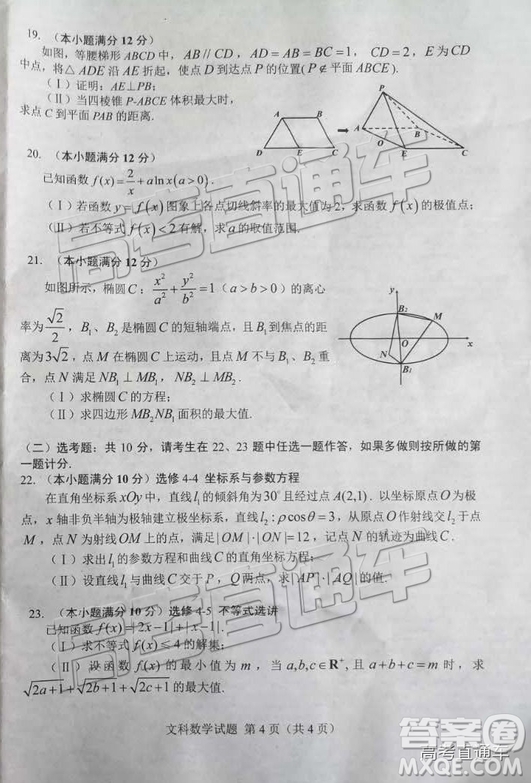 19. (本小题满分 12 分)
如图，等腰梯形 ABCD 中，AB // CD，AD=AB=BC=1，CD=2，E 为 CD
中点，将△ADE 沿 AE 折起，使点 D 到达点 P 的位置(P∉平面 ABCE).
(Ⅰ) 证明：AE⊥PB；
(Ⅱ) 当四棱锥 P-ABCE 体积最大时，
求点 C 到平面 PAB 的距离.
A B D E C
P A B O E C
20. (本小题满分 12 分)
已知函数 f(x)=2/x+a ln x(a>0).
(Ⅰ) 若函数 y=f(x)图象上各点切线斜率的最大值为 2，求函数 f(x)的极值点；
(Ⅱ) 若不等式 f(x)<2 有解，求 a 的取值范围.
21. (本小题满分 12 分)
如图所示，椭圆 C：x²/a²+y²/b²=1 (a>b>0) 的离心
率为 √2/2，B₁、B₂ 是椭圆 C 的短轴端点，且 B₁ 到焦点的距
离为 3√2，点 M 在椭圆 C 上运动，且点 M 不与 B₁、B₂ 重
合，点 N 满足 NB₁⊥MB₁，NB₂⊥MB₂.
(Ⅰ) 求椭圆 C 的方程；
(Ⅱ) 求四边形 MB₂NB₁ 面积的最大值.
y B₂ M x N O B₁
(二) 选考题：共 10 分，请考生在 22、23 题中任选一题作答，如果多做则按所做的第
一题计分.
22. (本小题满分 10 分) 选修 4-4 坐标系与参数方程
在直角坐标系 xOy 中，直线 l₁ 的倾斜角为 30° 且经过点 A(2,1). 以坐标原点 O 为极
点，x 轴非负半轴为极轴建立极坐标系，直线 l₂：ρcosθ=3，从原点 O 作射线交 l₂ 于点
M，点 N 为射线 OM 上的点，满足 |OM|·|ON|=12，记点 N 的轨迹为曲线 C.
(Ⅰ) 求出 l₁ 的参数方程和曲线 C 的直角坐标方程；
(Ⅱ) 设直线 l₁ 与曲线 C 交于 P，Q 两点，求 |AP|·|AQ| 的值.
23. (本小题满分 10 分) 选修 4-5 不等式选讲
已知函数 f(x)=|2x-1|+|x-1|.
(Ⅰ) 求 f(x)≤4 的解集；
(Ⅱ) 设函数 f(x) 的最小值为 m，当 a,b,c∈R⁺,且 a+b+c=m 时，求
√2a+1+√2b+1+√2c+1 的最大值.
文科数学试题 第 4 页（共 4 页）
高考直通车
高考直通车
高考直通车
答案圈
MXQE.COM